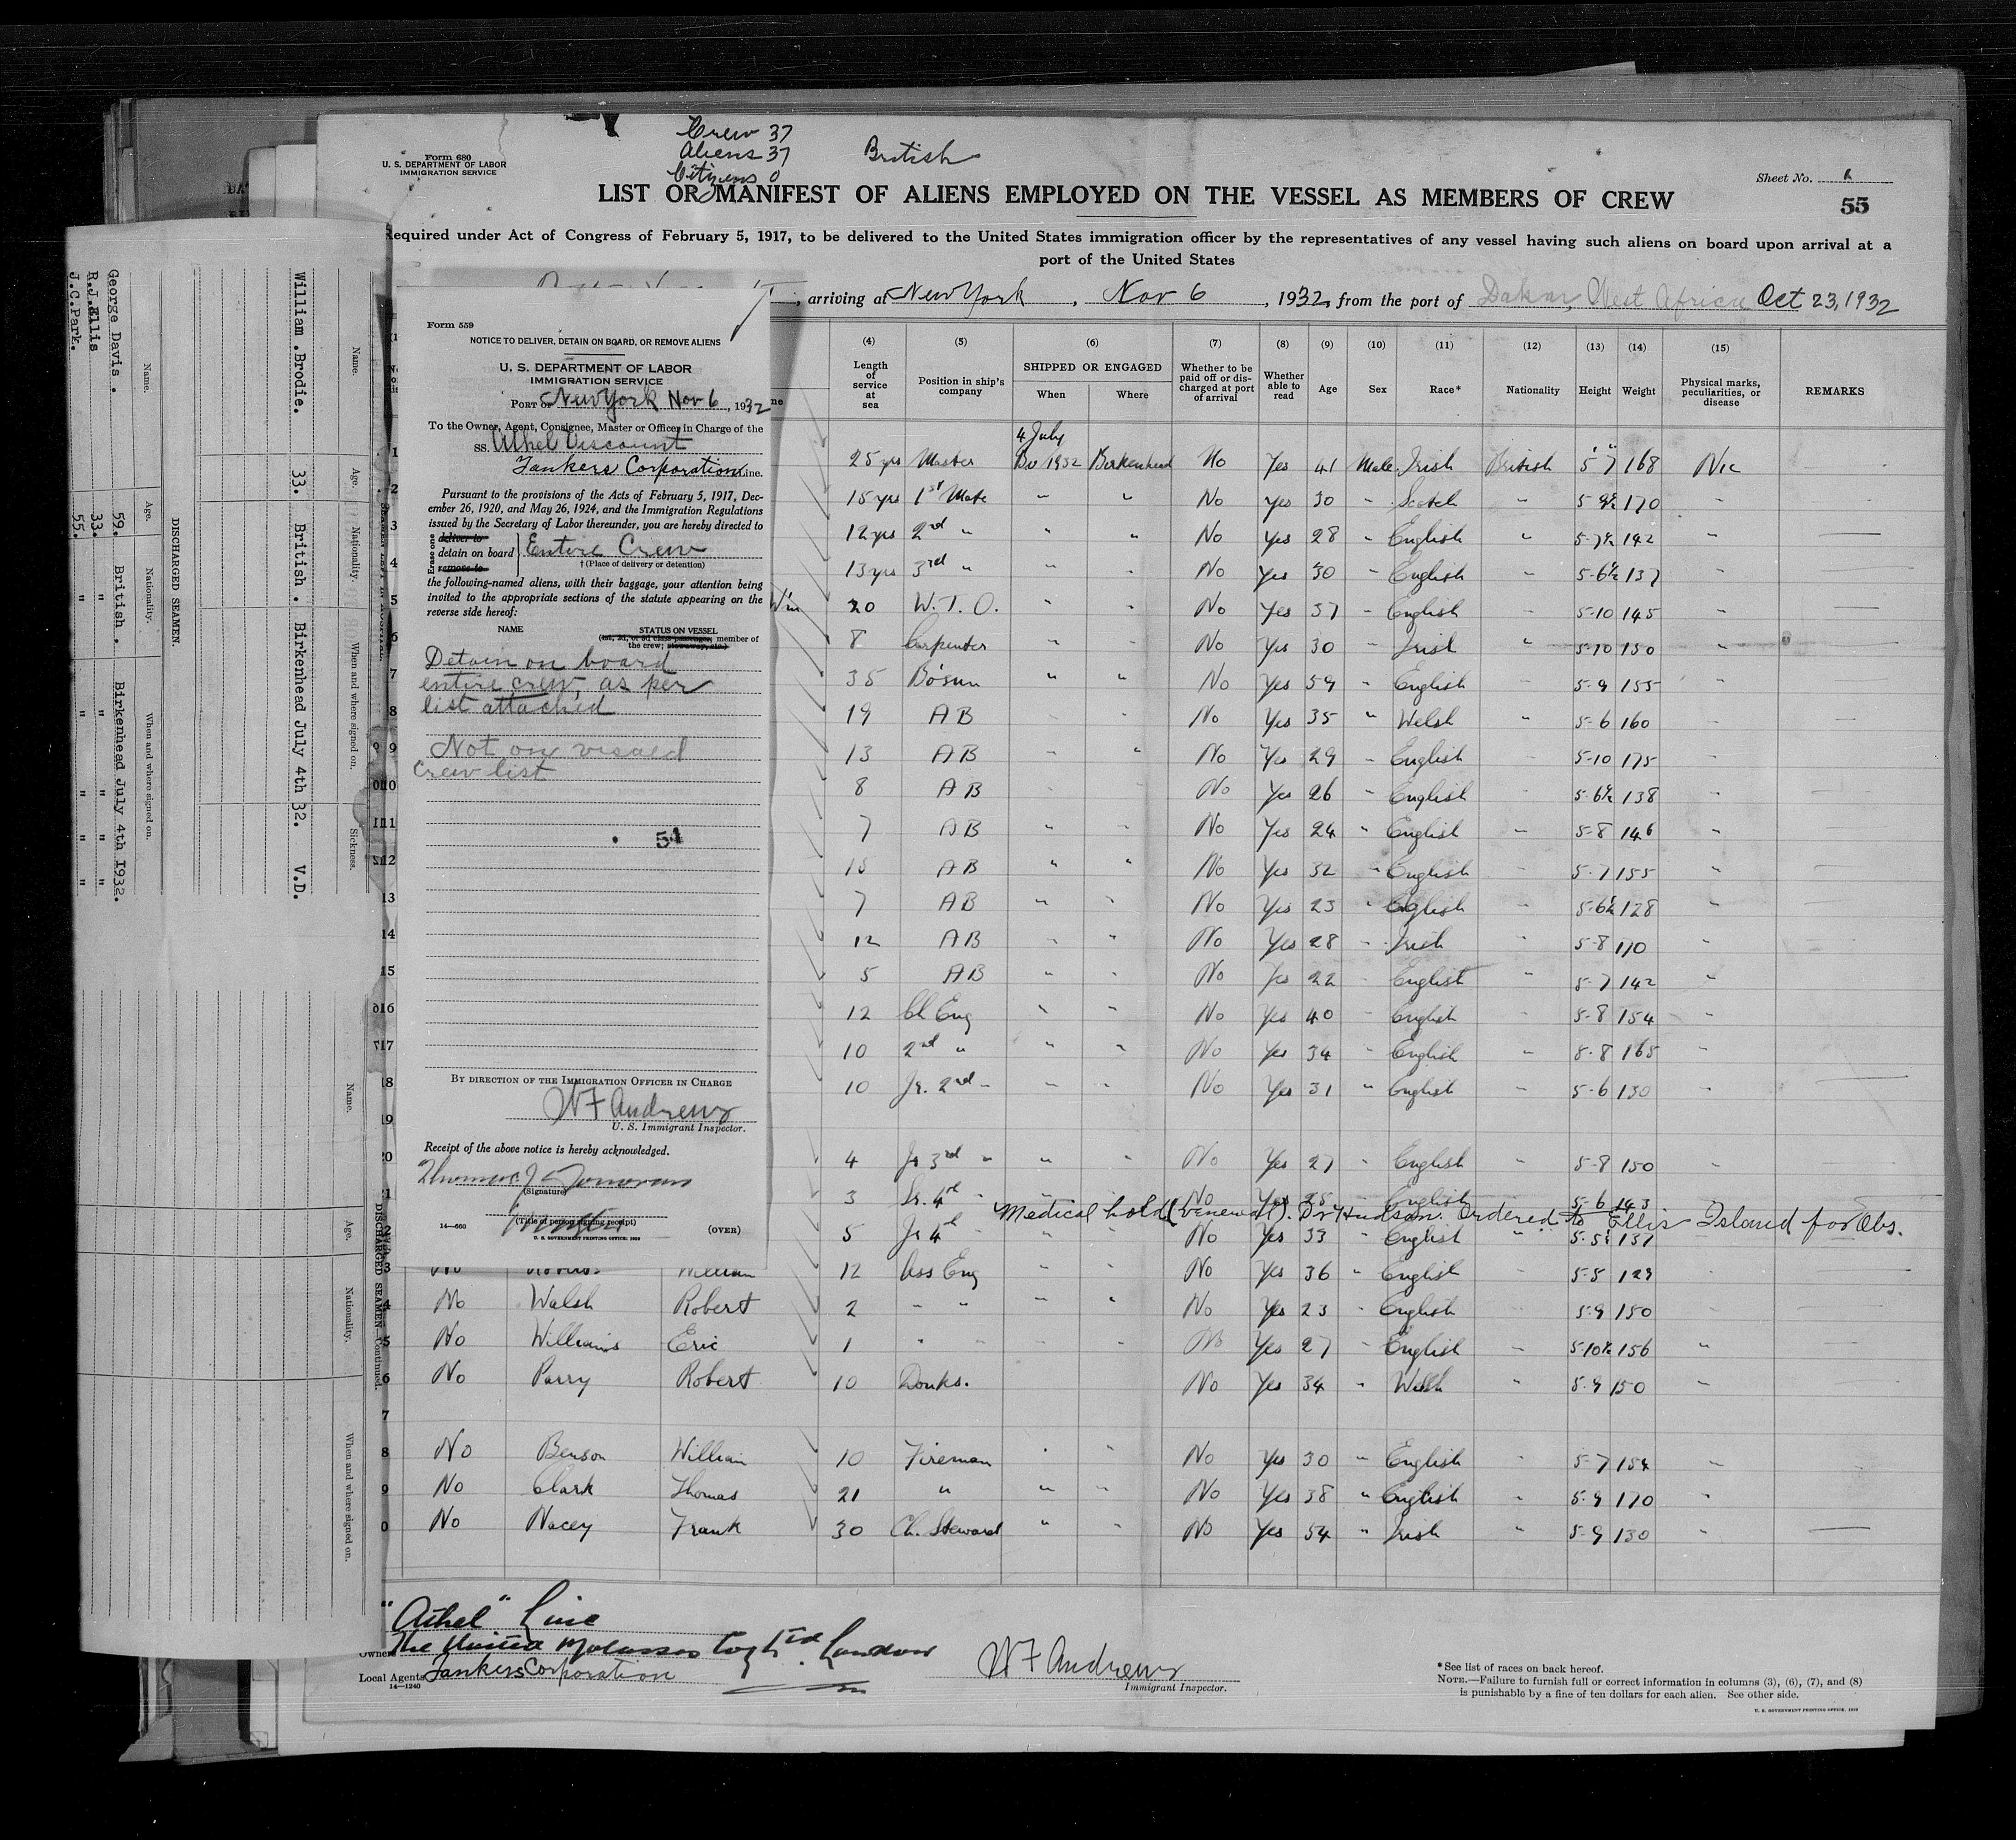 Crew 37
Aliens 37
Citizens 0
British
Form 680
U. S. DEPARTMENT OF LABOR
IMMIGRATION SERVICE
Sheet No.
55
LIST OR MANIFEST OF ALIENS EMPLOYED ON THE VESSEL AS MEMBERS OF CREW
Required under Act of Congress of February 5, 1917, to be delivered to the United States immigration officer by the representatives of any vessel having such aliens on board upon arrival at a
port of the United States
, arriving at New York, Nov 6, 1932, from the port of Dakar, West Africa Oct 23, 1932
Form 559
NOTICE TO DELIVER, DETAIN ON BOARD, OR REMOVE ALIENS
U. S. DEPARTMENT OF LABOR
IMMIGRATION SERVICE
PORT OF New York Nov 6, 1932
To the Owner, Agent, Consignee, Master or Officer in Charge of the
SS. Athel Viscount
Tankers Corporation Line.
Pursuant to the provisions of the Acts of February 5, 1917, Dec-
ember 26, 1920, and May 26, 1924, and the Immigration Regulations
issued by the Secretary of Labor thereunder, you are hereby directed to
Erase one
deliver to
detain on board } Entire Crew
remove to
† (Place of delivery or detention)
the following-named aliens, with their baggage, your attention being
invited to the appropriate sections of the statute appearing on the
reverse side hereof:
NAME
STATUS ON VESSEL
(1st, 2d, or 3d class passenger, member of
the crew; stowaway, etc.)
Detain on board
entire crew, as per
list attached
Not on visaed
crew list
54
BY DIRECTION OF THE IMMIGRATION OFFICER IN CHARGE
W F Andrews
U. S. Immigrant Inspector.
Receipt of the above notice is hereby acknowledged.
Thomas J Donovan
(Signature)
Master
(Title of person signing receipt)
14—660
U. S. GOVERNMENT PRINTING OFFICE: 1929
(OVER)
(4) (5) (6) (7) (8) (9) (10) (11) (12) (13) (14) (15)
Length of service at sea
Position in ship's company
SHIPPED OR ENGAGED
When
Where
Whether to be paid off or discharged at port of arrival
Whether able to read
Age
Sex
Race*
Nationality
Height
Weight
Physical marks, peculiarities, or disease
REMARKS
4 July
1 25 yrs Master 1932 Birkenhead No Yes 41 Male Irish British 5 7 168
2 15 yrs 1st Mate " " No Yes 30 " Scotch " 5-9½ 170 "
3 12 yrs 2nd " " " No Yes 28 " English " 5-7½ 142 "
4 13 yrs 3rd " " " No Yes 30 " English " 5-6½ 137 "
5 Wm 20 W. T. O. " " No Yes 37 " English " 5-10 145 "
6 8 Carpenter " " No Yes 30 " Irish " 5-10 150 "
7 35 Bosun " " No Yes 59 " English " 5-9 155 "
8 19 AB " " No Yes 35 " Welsh " 5-6 160 "
9 13 AB " " No Yes 29 " English " 5-10 175 "
10 8 AB " " No Yes 26 " English " 5-6½ 138 "
11 7 AB " " No Yes 24 " English " 5-8 146 "
12 15 AB " " No Yes 32 " English " 5-7 155 "
13 7 AB " " No Yes 23 " English " 5-6½ 128 "
14 12 AB " " No Yes 28 " Irish " 5-8 170 "
15 5 AB " " No Yes 22 " English " 5-7 142 "
16 12 Ch Eng " " No Yes 40 " English " 5-8 154 "
17 10 2nd " " " No Yes 34 " English " 5-8 165 "
18 10 Jr. 2nd " " " No Yes 31 " English " 5-6 130
19
20 4 Jr 3rd " " " No Yes 27 " English " 5-8 150
21 3 4 " No Yes 25 English 5-6 143
Medical hold (Venereal). Dr Hudson. Ordered to Ellis Island for Obs.
5 Jr 4 " " No Yes 33 " English " 5-5½ 137
3 No Roberts William 12 Ass Eng " " No Yes 36 " English 5-5 129
4 No Walsh Robert 2 " " " " No Yes 23 " English 5-9 150
5 No Williams Eric 1 " " " " No Yes 27 " English " 5-10½ 156 "
6 No Parry Robert 10 Donks. No Yes 34 " Welsh " 5-9 150 "
7
8 No Benson William 10 Fireman " " No Yes 30 " English " 5-7 154 "
9 No Clark Thomas 21 " " " No Yes 38 " English " 5-9 170 "
0 No Nacey Frank 30 Ch. Steward " " No Yes 54 " Irish " 5-9 130 "
"Athel" Line
Owners The United Molasses Coy Ltd. London
Local Agents Tankers Corporation
14—1240
W F Andrews
Immigrant Inspector.
*See list of races on back hereof.
NOTE.—Failure to furnish full or correct information in columns (3), (6), (7), and (8)
is punishable by a fine of ten dollars for each alien. See other side.
U. S. GOVERNMENT PRINTING OFFICE: 1929
Name. Age. Nationality. When and where signed on. Sickness.
William .Brodie. 33. British. Birkenhead July 4th 32. V.D.
DISCHARGED SEAMEN.
Name. Age. Nationality. When and where signed on.
George Davis . 59. British . Birkenhead July 4th 1932.
R.J.Ellis 33. " " " "
J.C.Park. 55. " " " "
Name. Age. Nationality. When and where signed on.
DISCHARGED SEAMEN—Continued.